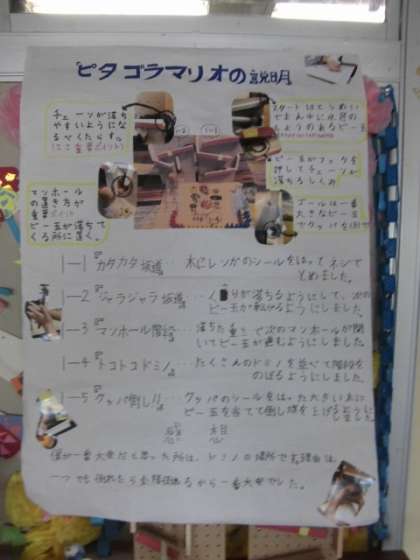 ピタゴラマリオの説明
チェーンが落ち
やすいようにな
るべくたらす。
スタートは
ビー玉
ビー玉がフックを
押してチェーンが
落ちるしくみ
マンホール
の置き方が
重要
ビー玉が落ちて
くる所に置く。
ゴールは一番
大きなビー玉
でクッパを倒す
1-1 カタカタ坂道…木にレンガのシールをはってネジで
とめました。
1-2 ジャラジャラ坂道…落ちるようにして、次の
ビー玉が転がるようにしました。
1-3 マンホール階段…落ちた重さで次のマンホールが開
いてビー玉が進むようにしました
1-4 トコトコドミノ…たくさんのドミノを並べて階段を
のぼるようにしました。
1-5 クッパ倒し!!…クッパのシールをはった大きい木に
ビー玉を当てて倒し旗を上げるように
しました
感想
僕が一番大変だと思った所は、ドミノの場所です。理由は、
一つでも倒れたら全部倒れるから一番大変でした。